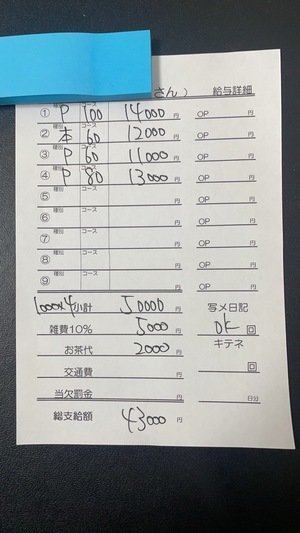 さん） 給与詳細
① 種別 P コース 100 14000 円 OP 円
② 種別 本 コース 60 12000 円 OP 円
③ 種別 P コース 60 11000 円 OP 円
④ 種別 P コース 80 13000 円 OP 円
⑤ 種別 コース 円 OP 円
⑥ 種別 コース 円 OP 円
⑦ 種別 コース 円 OP 円
⑧ 種別 コース 円 OP 円
⑨ 種別 コース 円 OP 円
1000×4 小計 50000 円 写メ日記
雑費10% 5000 円 OK 回
お茶代 2000 円 キテネ
交通費 円 回
当欠罰金 円 日分
総支給額 43000 円